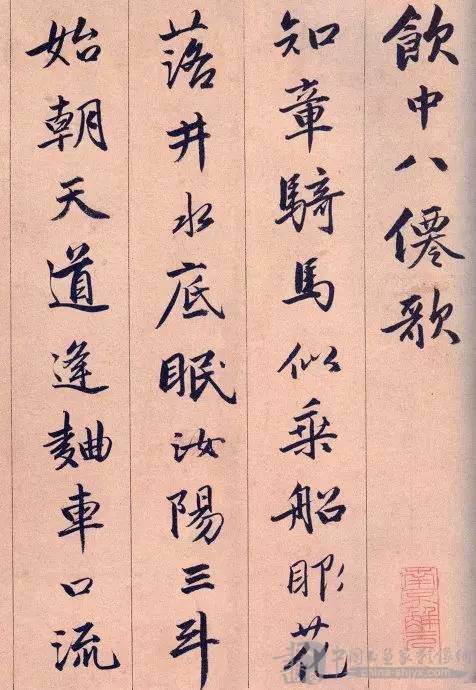 飲中八僊歌
知章騎馬似乘船眼花
落井水底眠汝陽三斗
始朝天道逢麯車口流
中国书画家影像网
china-shjyx.com